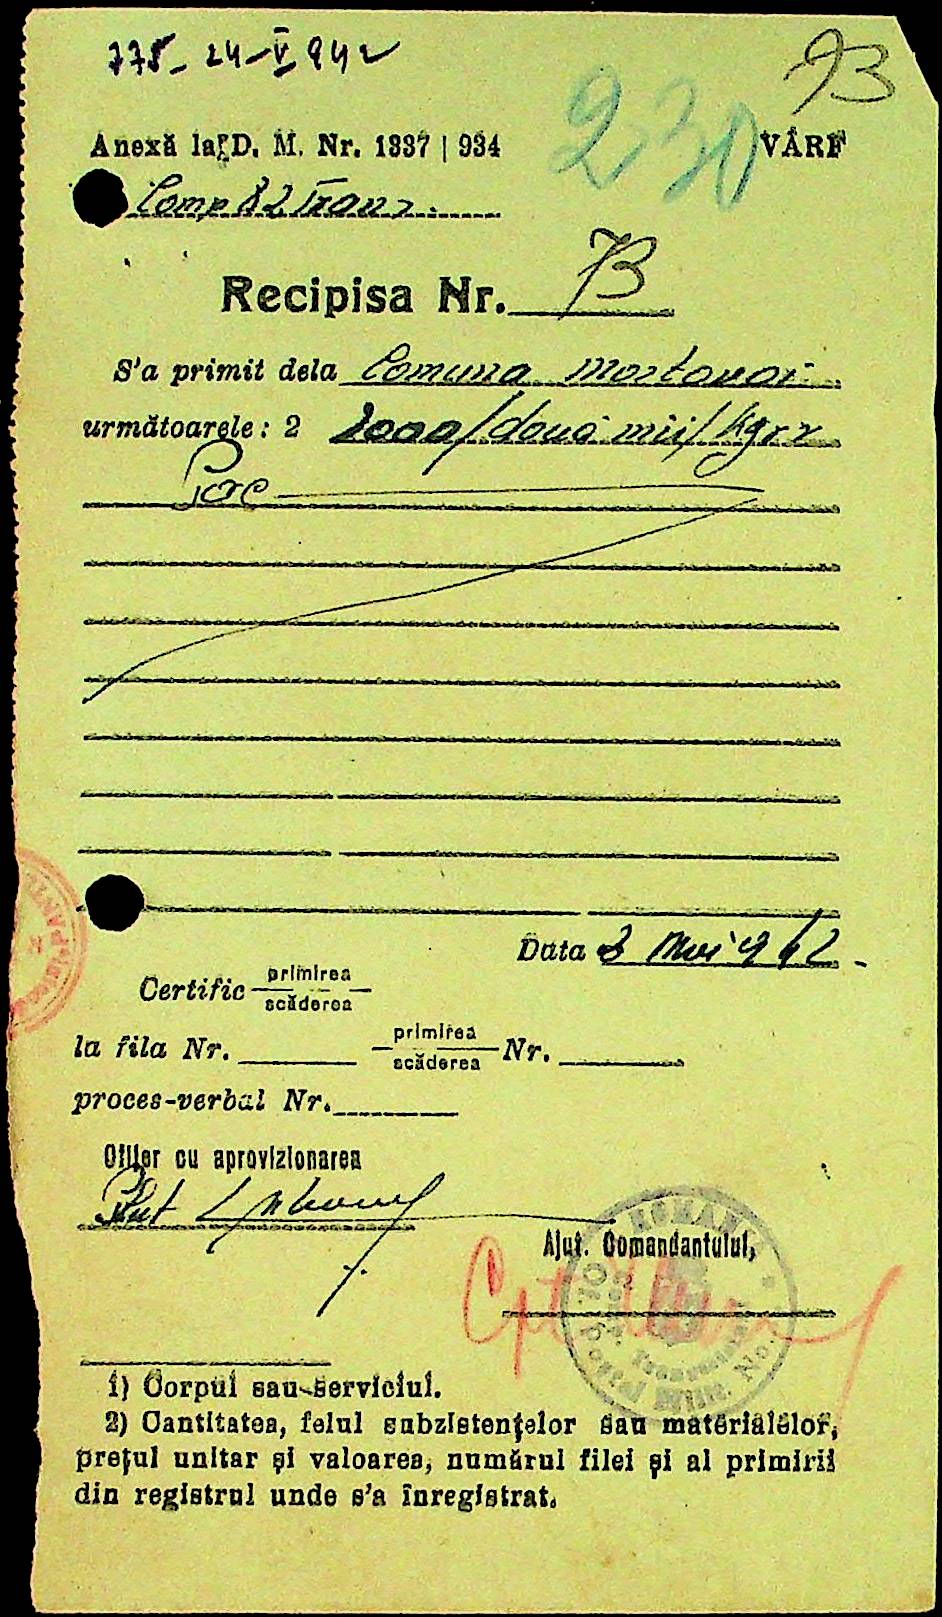 775 - 24-V 942
93
230
Anexă la D. M. Nr. 1337 | 934
VÂRF
Comp 82
Recipisa Nr. 73
S'a primit dela Comuna Mostovoi
următoarele: 2 2000/două mii/kgr
Data 3 Mai 942
Certific primirea
scăderea
la fila Nr. primirea Nr.
scăderea
proces-verbal Nr.
Ofițer cu aprovizionarea
Plut
Ajut. Comandantului,
Cpt
ROMANIA
Of. Poștal Milit. No.
1) Corpul sau serviciul.
2) Cantitatea, felul subzistențelor sau materialelor,
prețul unitar și valoarea, numărul filei și al primirii
din registrul unde s'a înregistrat.